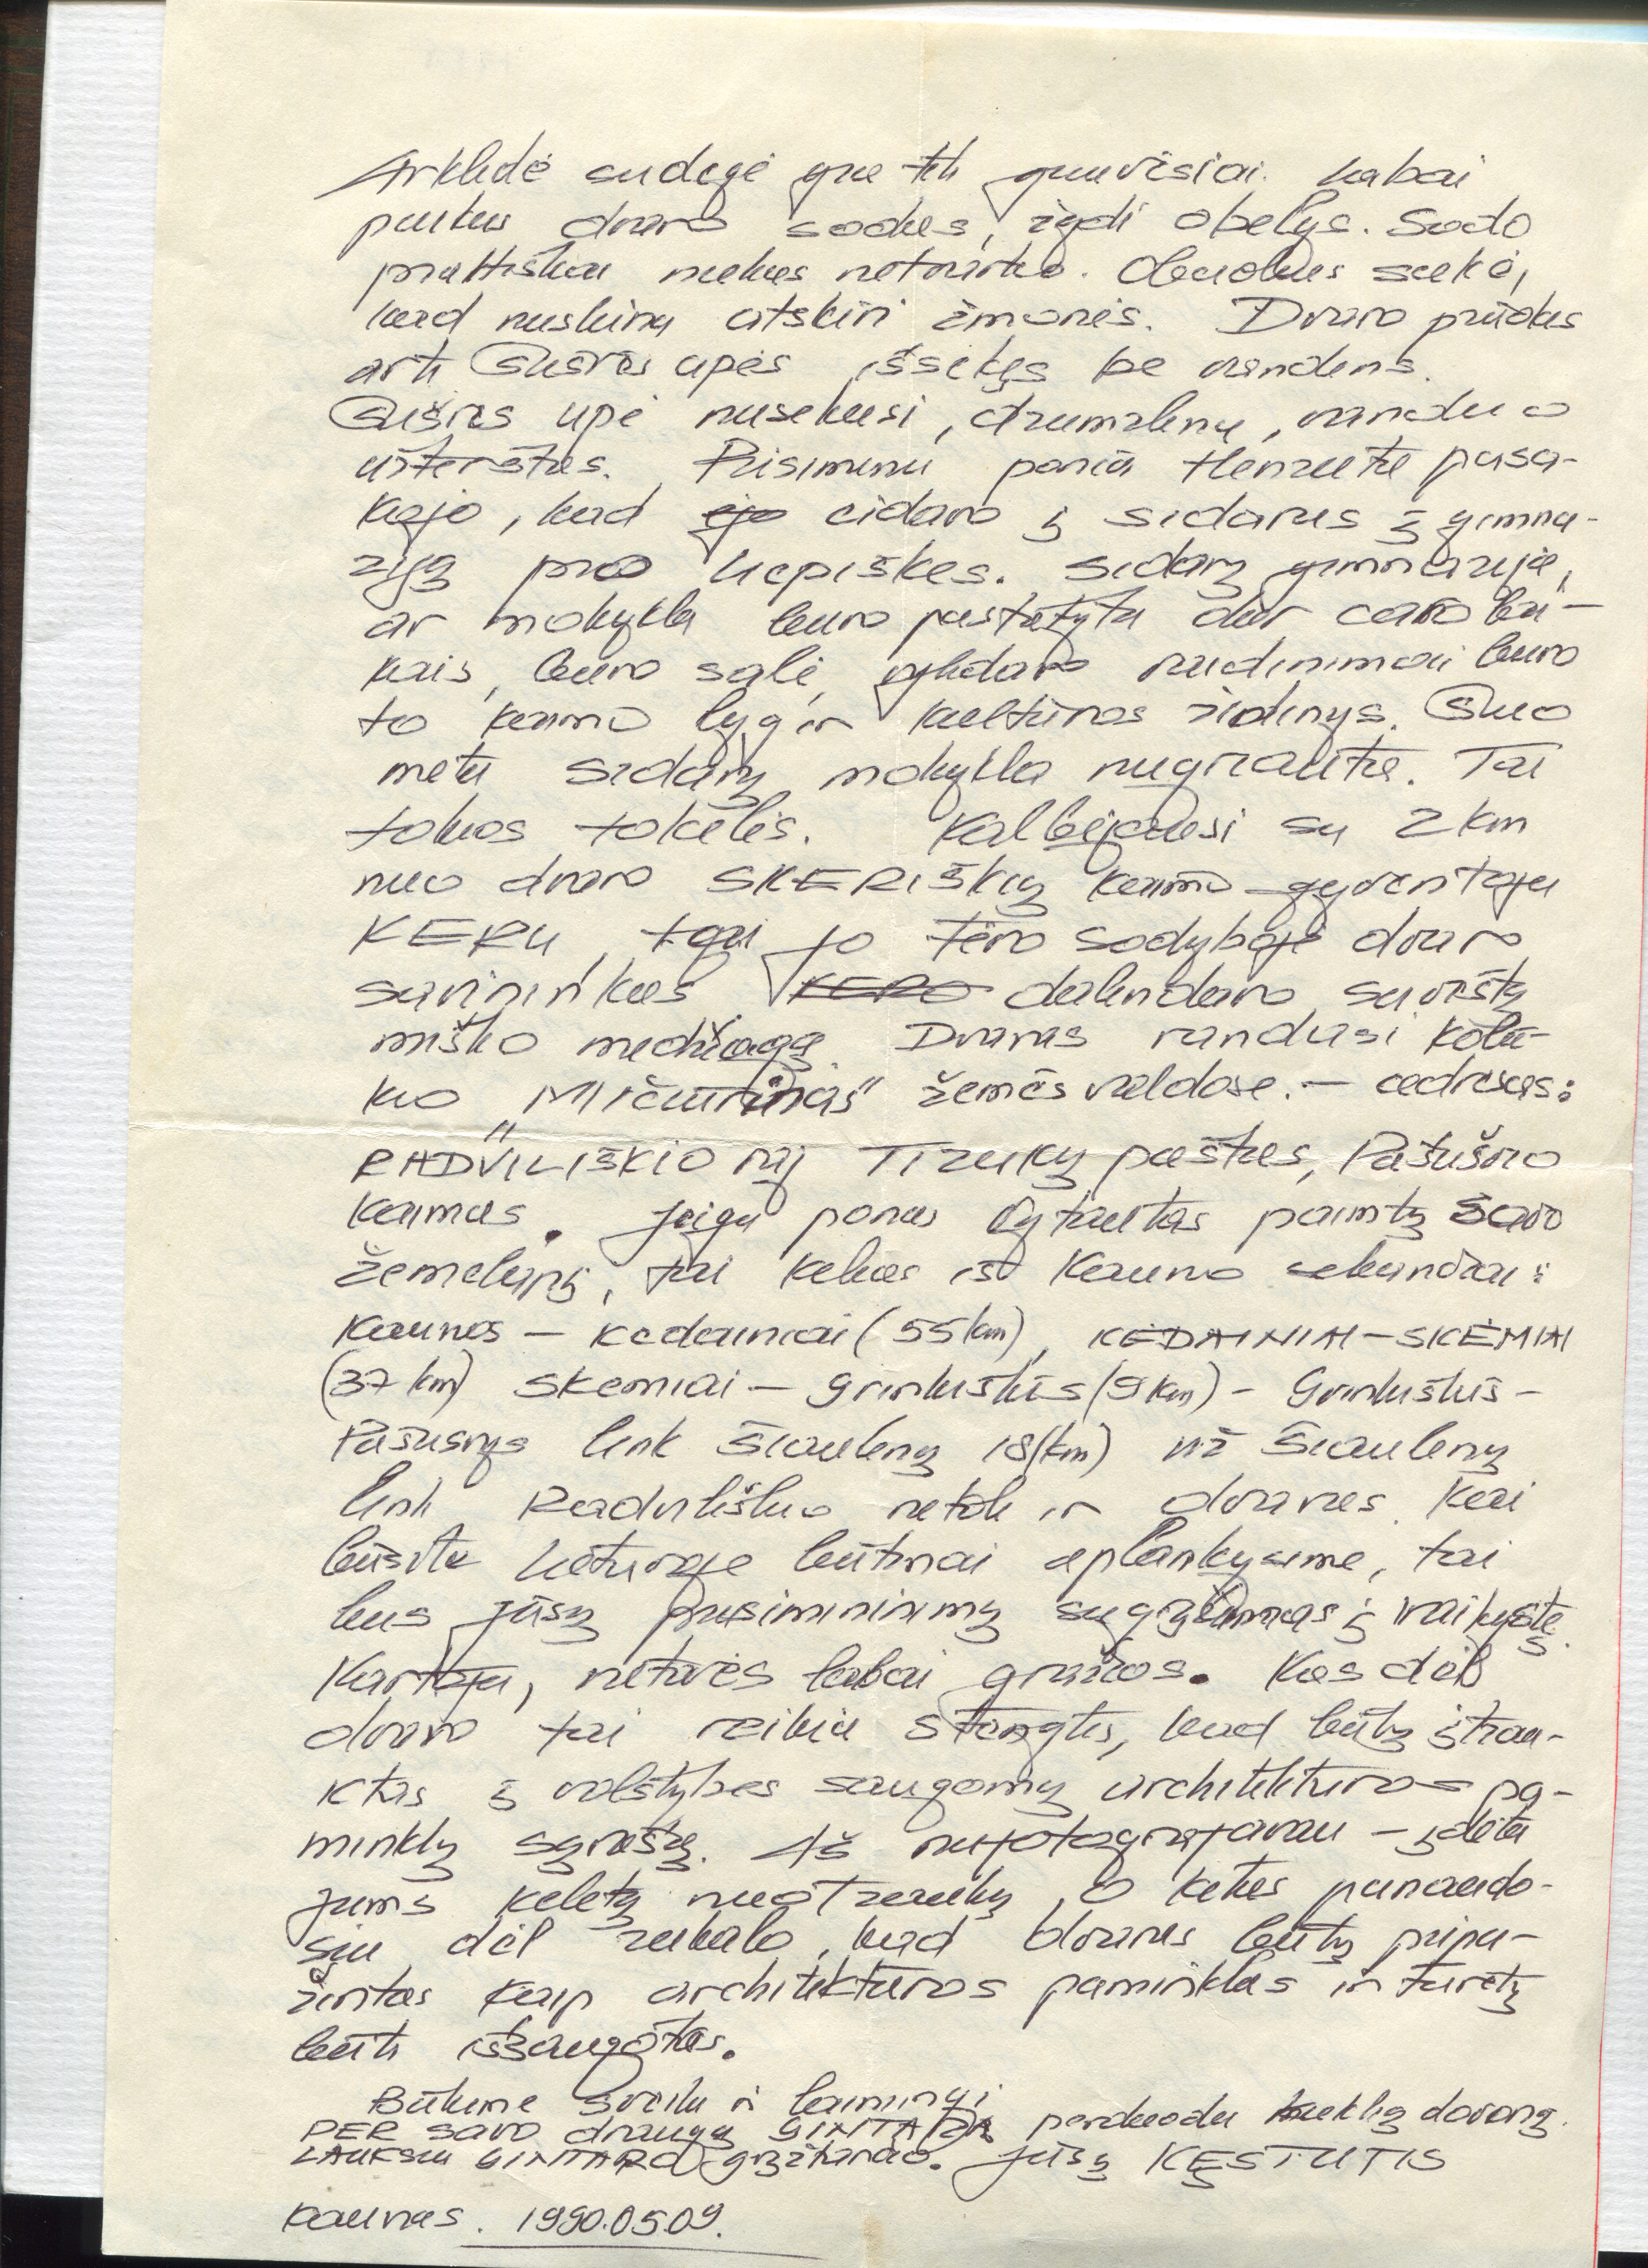 Arklidė sudegė yra tik griuvėsiai. Labai
puikus dvaro sodas, žydi obelys. Sodo
praktiškai niekas netvarko. Obuolius sakė,
kad nuskina atskiri žmonės. Dvaro prūdas
arti Šušvės upės išsekęs be vandens.
Šušvės upė nusekusi, drumzlina, vanduo
užterštas. Prisimenu ponia Henzutė pasa-
kojo, kad ėjo eidavo į Sidarus į gimna-
ziją pro liepiškes. Sidarų gimnazija,
ar mokykla buvo pastatyta dar caro lai-
kais, buvo salė, vykdavo vaidinimai buvo
to kaimo lyg ir kultūros židinys. Šiuo
metu Sidarų mokykla nugriauta. Tai
tokios tokelės. Kalbėjausi su 2 km
nuo dvaro SKERIŠKIŲ kaimo gyventoju
KERU, tai jo tėvo sodyboje dvaro
savininkas KERO dalindavo suvežtą
miško medžiagą. Dvaras randasi kolū-
kio „Mičiurinas" žemės valdose. – adresas:
RADVILIŠKIO raj Tiruky paštas, Pašušvio
kaimas. Jeigu ponas Vytautas paimtų savo
žemėlapį, tai kelias iš Kauno sekančiai:
Kaunas – Kėdainiai (55 km), KĖDAINIAI – SKĖMIAI
(37 km) Skėmiai – Grinkiškis (9 km) – Grinkiškis –
Pašušvys link Šiaulėnų 18 (km) už Šiaulėnų
link Radviliškio netoli ir dvaras. Kai
būsite Lietuvoje būtinai aplankysime, tai
bus jūsų prisimininimų sugrįžimas į vaikystę.
Kartoju, vietovės labai gražios. Kas dėl
dvaro tai reikia stengtis, kad būtų įtrau-
ktas į valstybės saugomų architektūros pa-
minklų sąrašą. Aš nufotografavau – įdėtu
jums keletą nuotraukų, o kitas panaudo-
siu dėl reikalo, kad dvaras būtų pripa-
žintas kaip architektūros paminklas ir turėtų
būti išsaugotas.
Būkime sveiki ir laimingi
PER savo draugą GINTARĄ perduodu kuklią dovaną.
LAUKSIU GINTARO grįžtančio. Jūsų KĘSTUTIS
Kaunas. 1990.05.09.